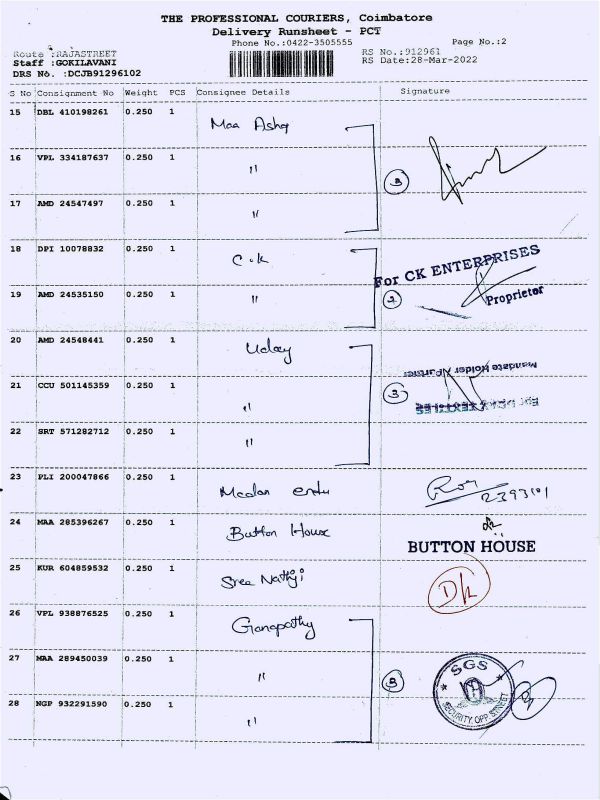 THE PROFESSIONAL COURIERS, Coimbatore
Delivery Runsheet - PCT
Phone No.:0422-3505555
Page No.:2
Route :RAJASTREET
RS No.:912961
Staff :GOKILAVANI
RS Date:28-Mar-2022
DRS No. :DCJB91296102
S No Consignment No Weight PCS Consignee Details Signature
15 DBL 410198261 0.250 1 Maa Ashq
16 VPL 334187637 0.250 1 " 3
17 AMD 24547497 0.250 1 "
18 DPI 10078832 0.250 1 C.K
For CK ENTERPRISES
19 AMD 24535150 0.250 1 " 2
Proprietor
20 AMD 24548441 0.250 1 Uday
Mandate Holder / Partner
21 CCU 501145359 0.250 1 " 3
22 SRT 571282712 0.250 1 "
23 PLI 200047866 0.250 1 2393101
24 MAA 285396267 0.250 1 Button House
BUTTON HOUSE
25 KUR 604859532 0.250 1 Sree Nathji D/L
26 VPL 938876525 0.250 1 Ganapathy
27 MAA 289450039 0.250 1 " 3
SGS
SECURITY OPP STREET
28 NGP 932291590 0.250 1 "